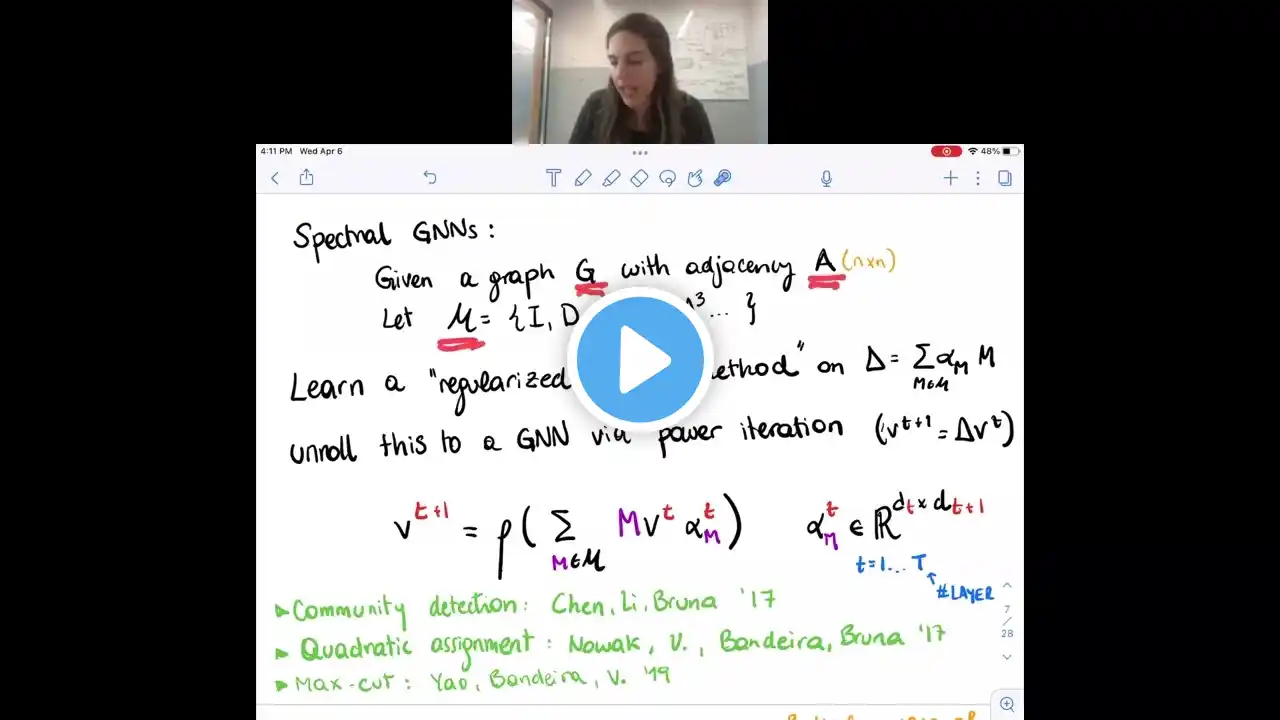 4:11 PM Wed Apr 6
48%
Spectral GNNs:
Given a graph G with adjacency A (n×n)
Let M = {I, D 3 ... }
Learn a "regularized ethod" on Δ = Σ α_M M
M∈M
unroll this to a GNN via power iteration (v^t+1 = Δv^t)
v^t+1 = ρ( Σ M v^t α_M^t ) α_M^t ∈ ℝ^d_t × d_t+1
M∈M t=1... T
#LAYER
7
/
28
▸Community detection: Chen, Li, Bruna '17
▸ Quadratic assignment: Nowak, V., Bandeira, Bruna '17
▸ Max-cut: Yao, Bandeira, V. '19